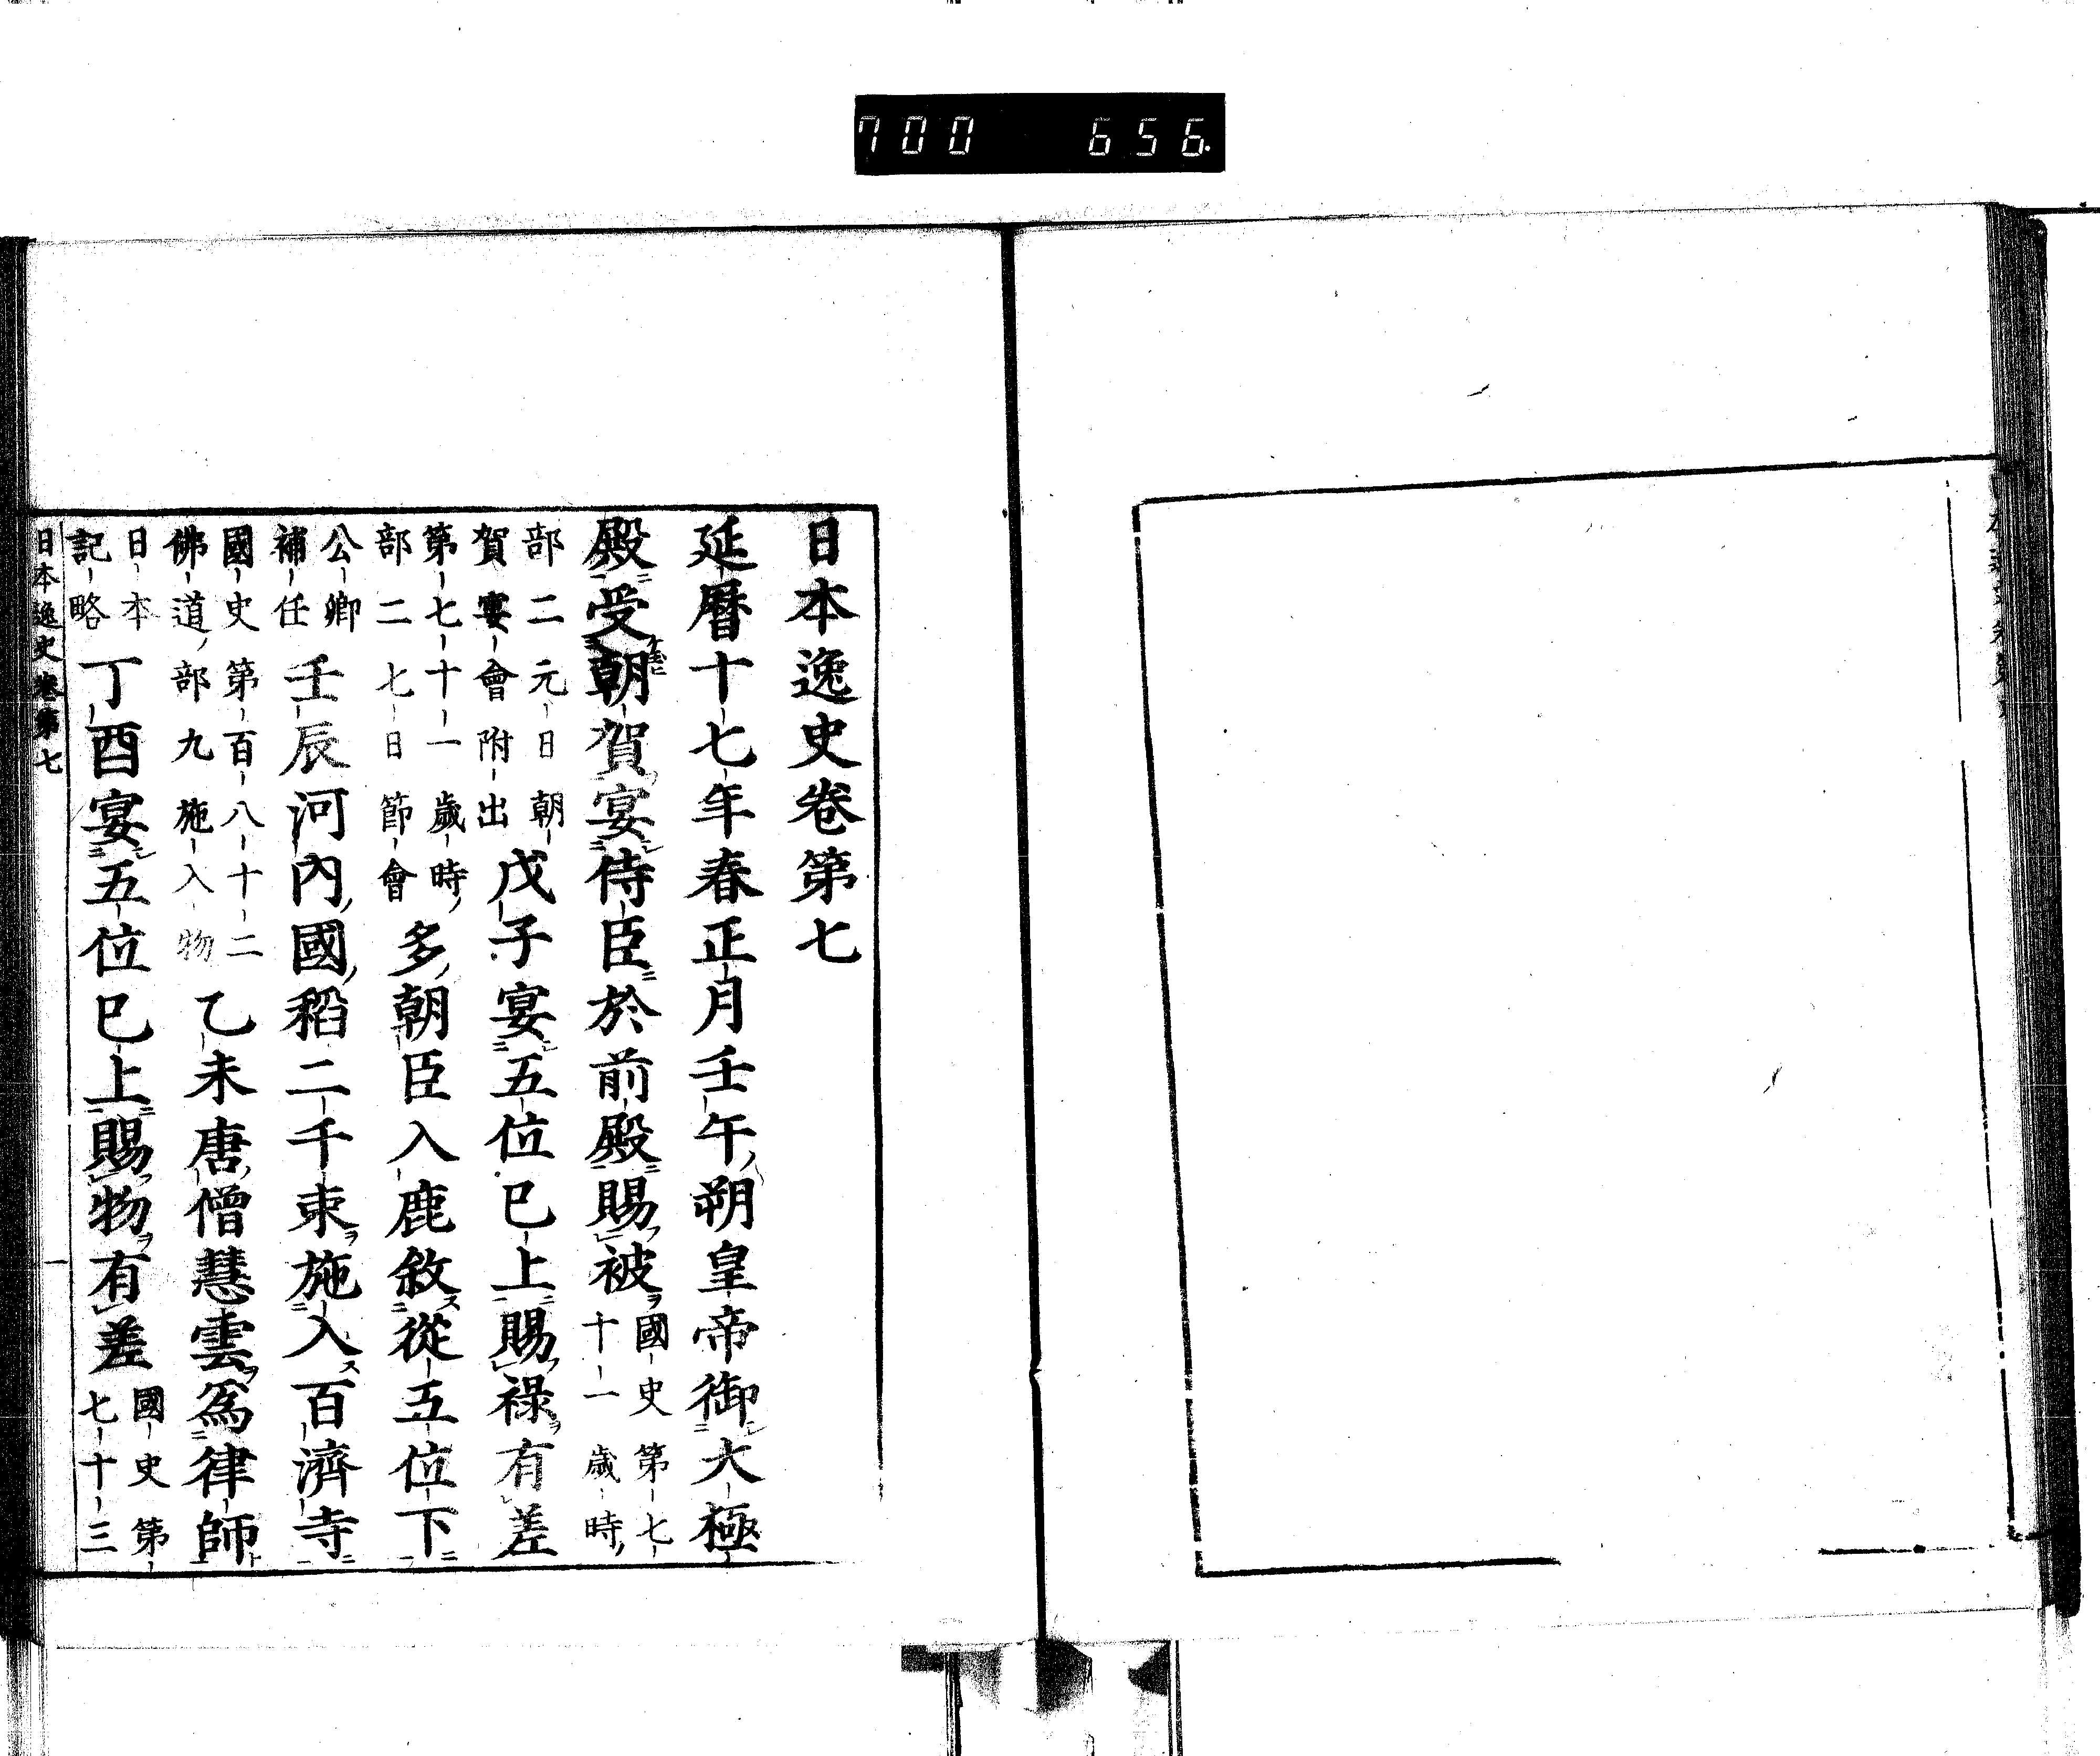 700 656.
日本逸史卷第七
延曆十七年春正月壬午朔皇帝御大極
殿受朝賀宴侍臣於前殿賜被國史第七十一歲時
部二元日朝賀宴會附出戊子宴五位已上賜祿有差
第七十一歲時部二七日節會多朝臣入鹿敘從五位下
公卿補任壬辰河內國稻二千束施入百濟寺
國史第百八十二佛道部九施入物乙未唐僧慧雲爲律師
日本記略丁酉宴五位已上賜物有差國史第七十三
日本逸史卷第七 一